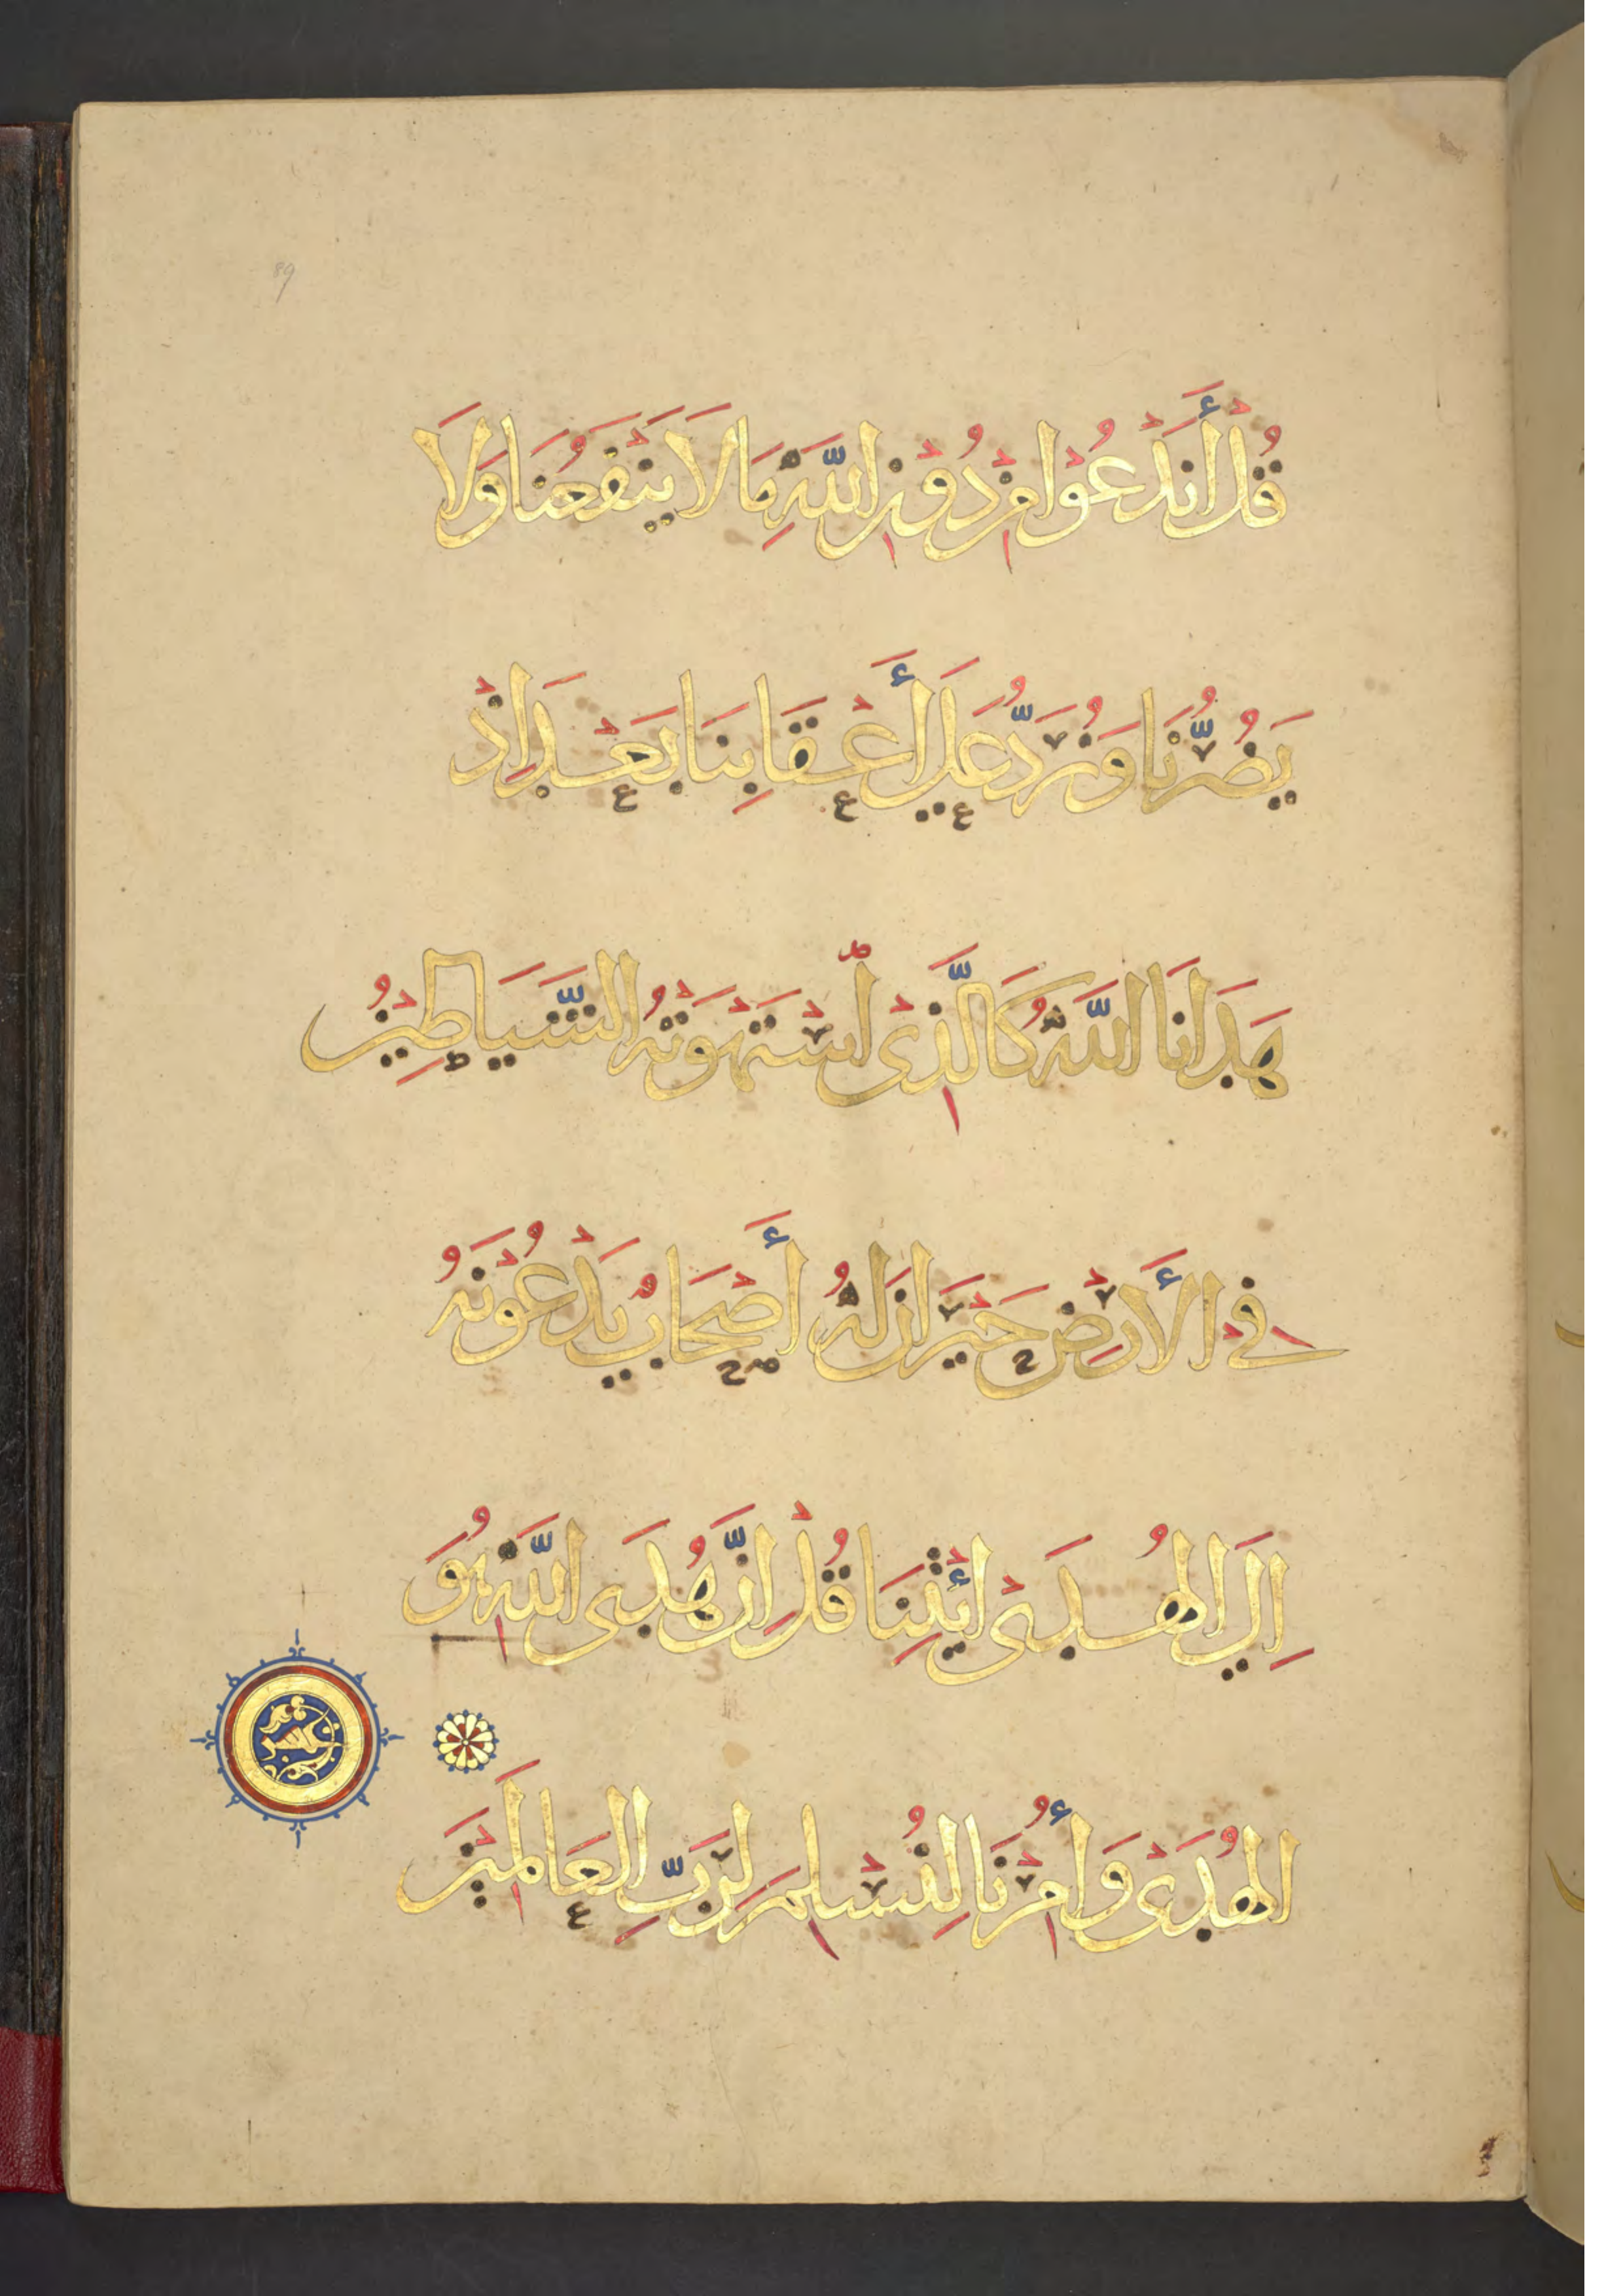 89
قُلْ أَنَدْعُوْا مِنْ دُوْنِ اللَّهِ مَا لَا يَنْفَعُنَا وَلَا
يَضُرُّنَا وَنُرَدُّ عَلَى أَعْقَابِنَا بَعْدَ اِذْ
هَدَانَا اللَّهُ كَالَّذِىْ اسْتَهْوَتْهُ الشَّيَاطِيْنُ
فِى الْأَرْضِ حَيْرَانَ لَهُ أَصْحَابٌ يَدْعُوْنَهُ
اِلَى الْهُدَىْ ائْتِنَا قُلْ اِنَّ هُدَى اللَّهِ هُوَ
الْهُدَىْ وَأُمِرْنَا لِنُسْلِمَ لِرَبِّ الْعَالَمِيْنَ